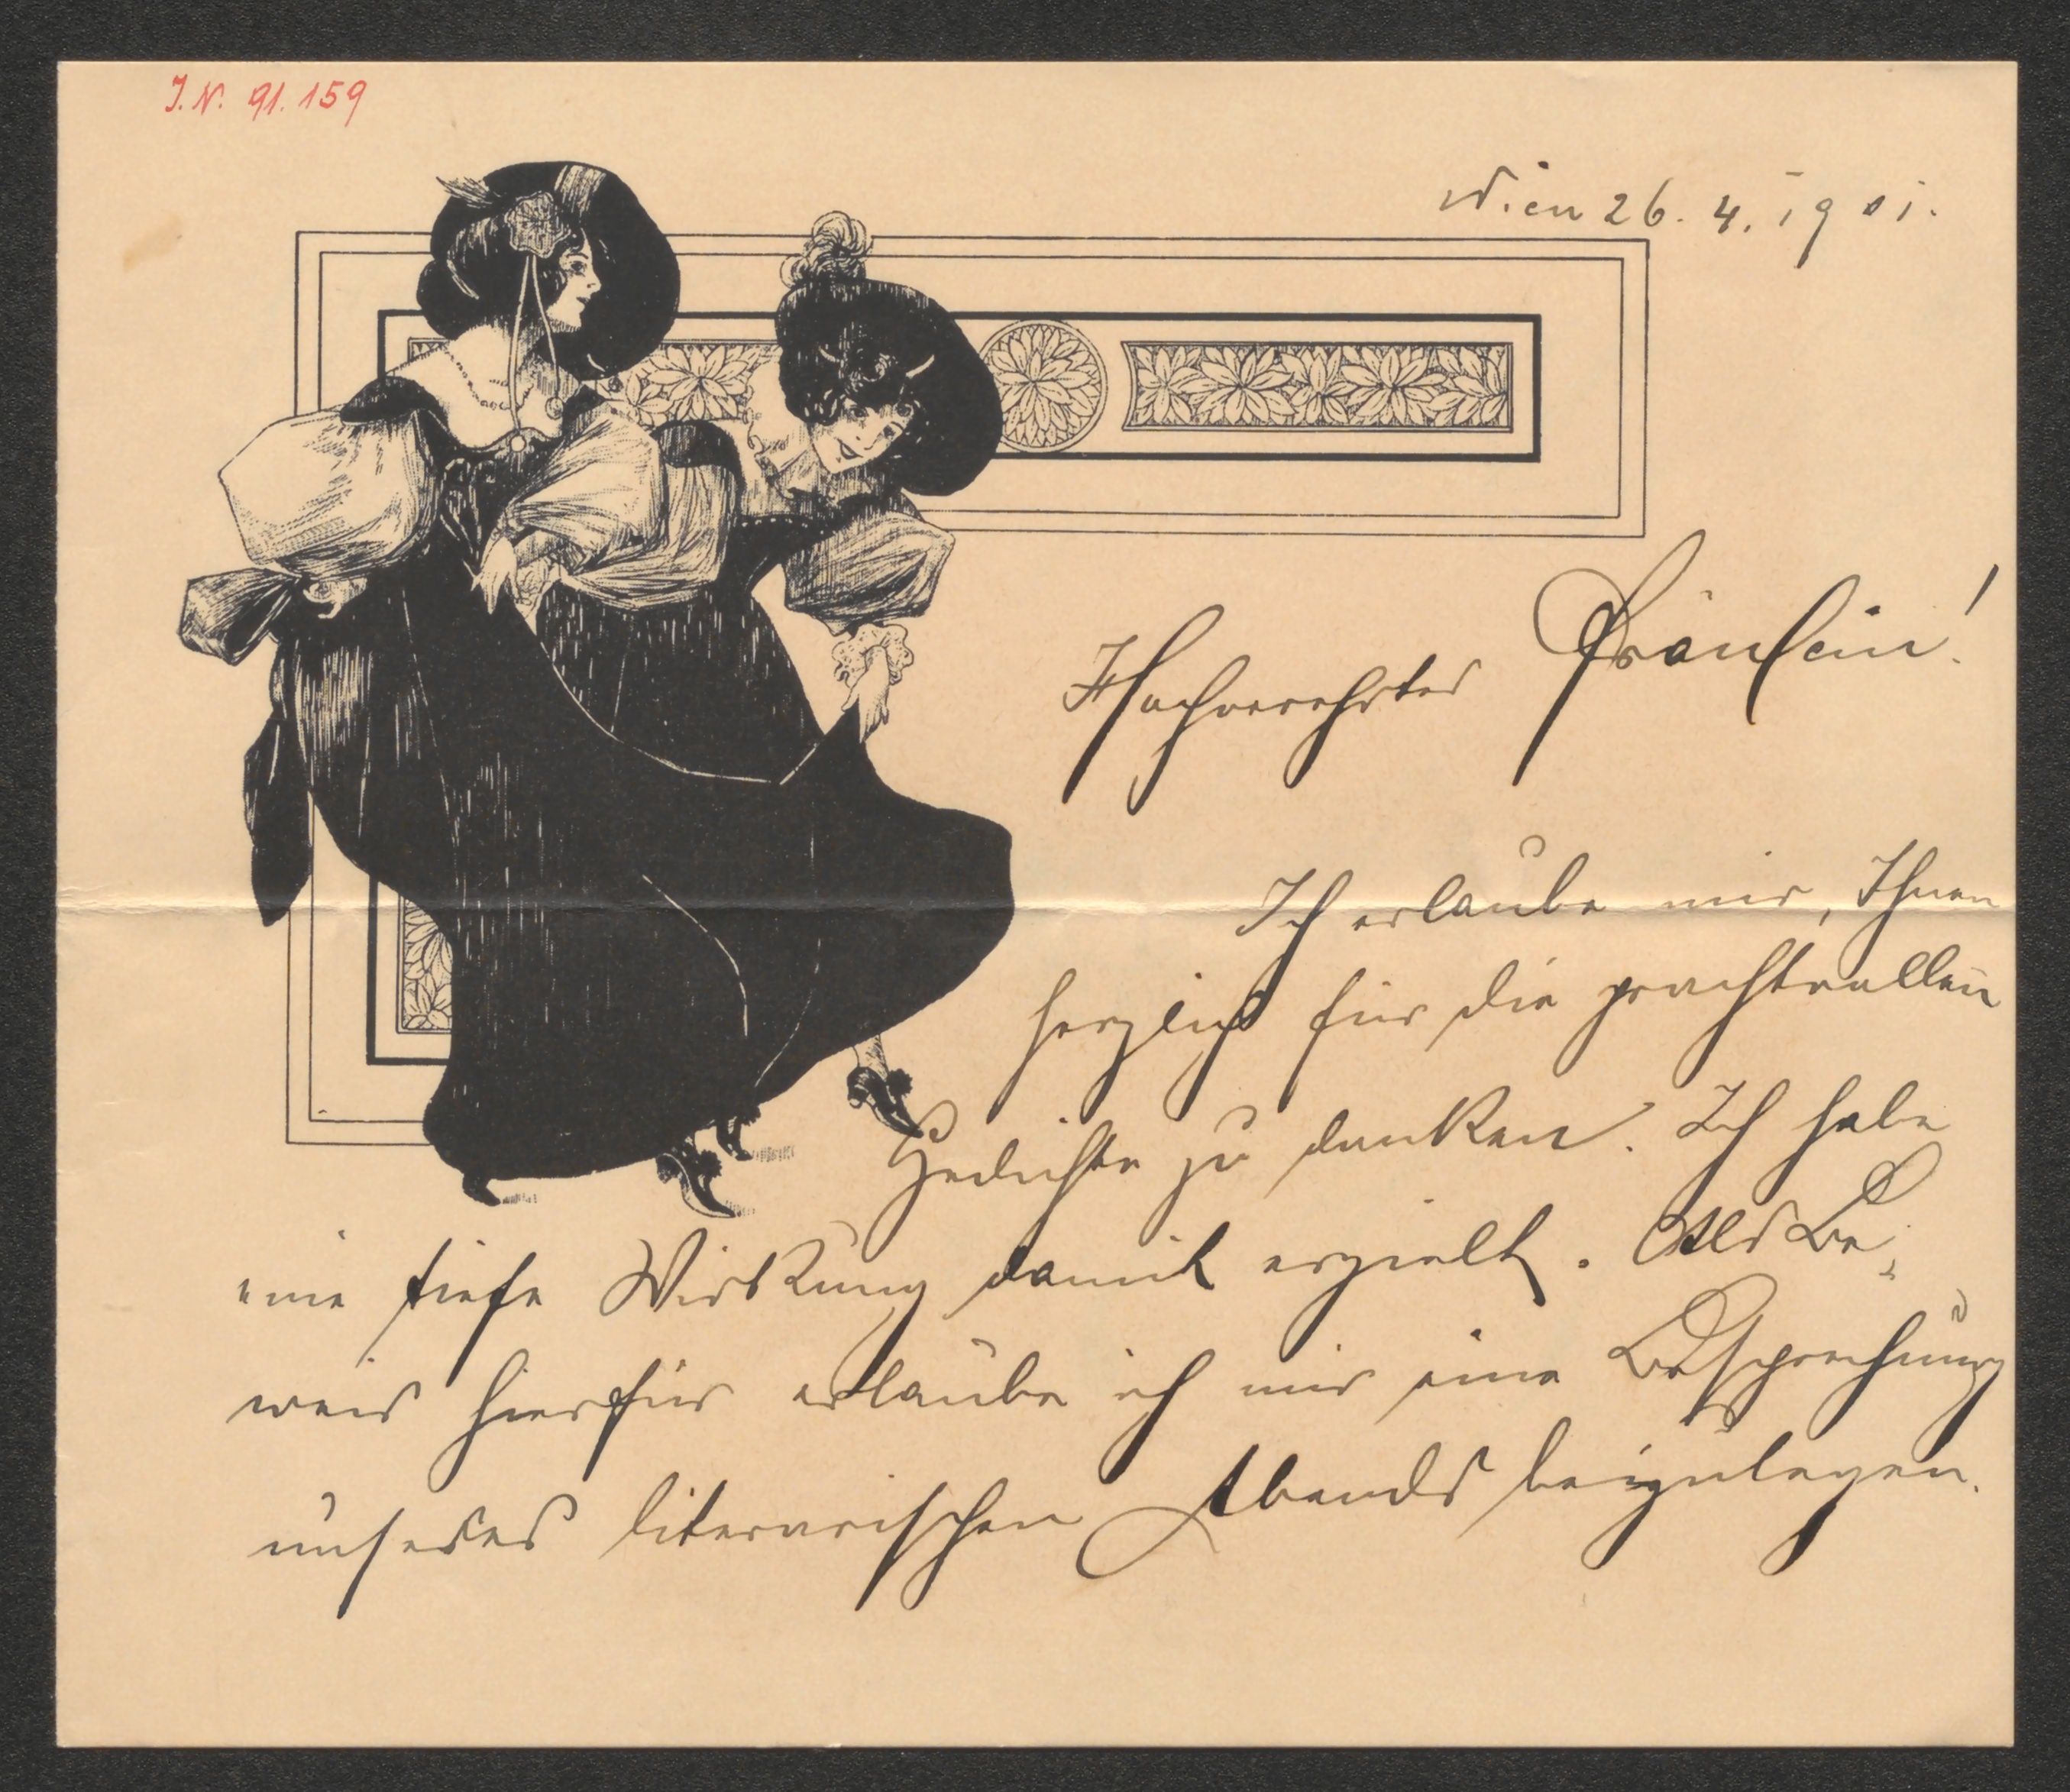 J.N. 91.159
Wien 26. 4. 1901.
Hochverehrtes Fräulein!
Ich erlaube mir, Ihnen
herzlichst für die prachtvollen
Gedichte zu danken. Ich habe
eine tiefe Wirkung damit erzielt. Als Be-
weis hierfür erlaube ich mir eine Besprechung
unseres literarischen Abends beizulegen.